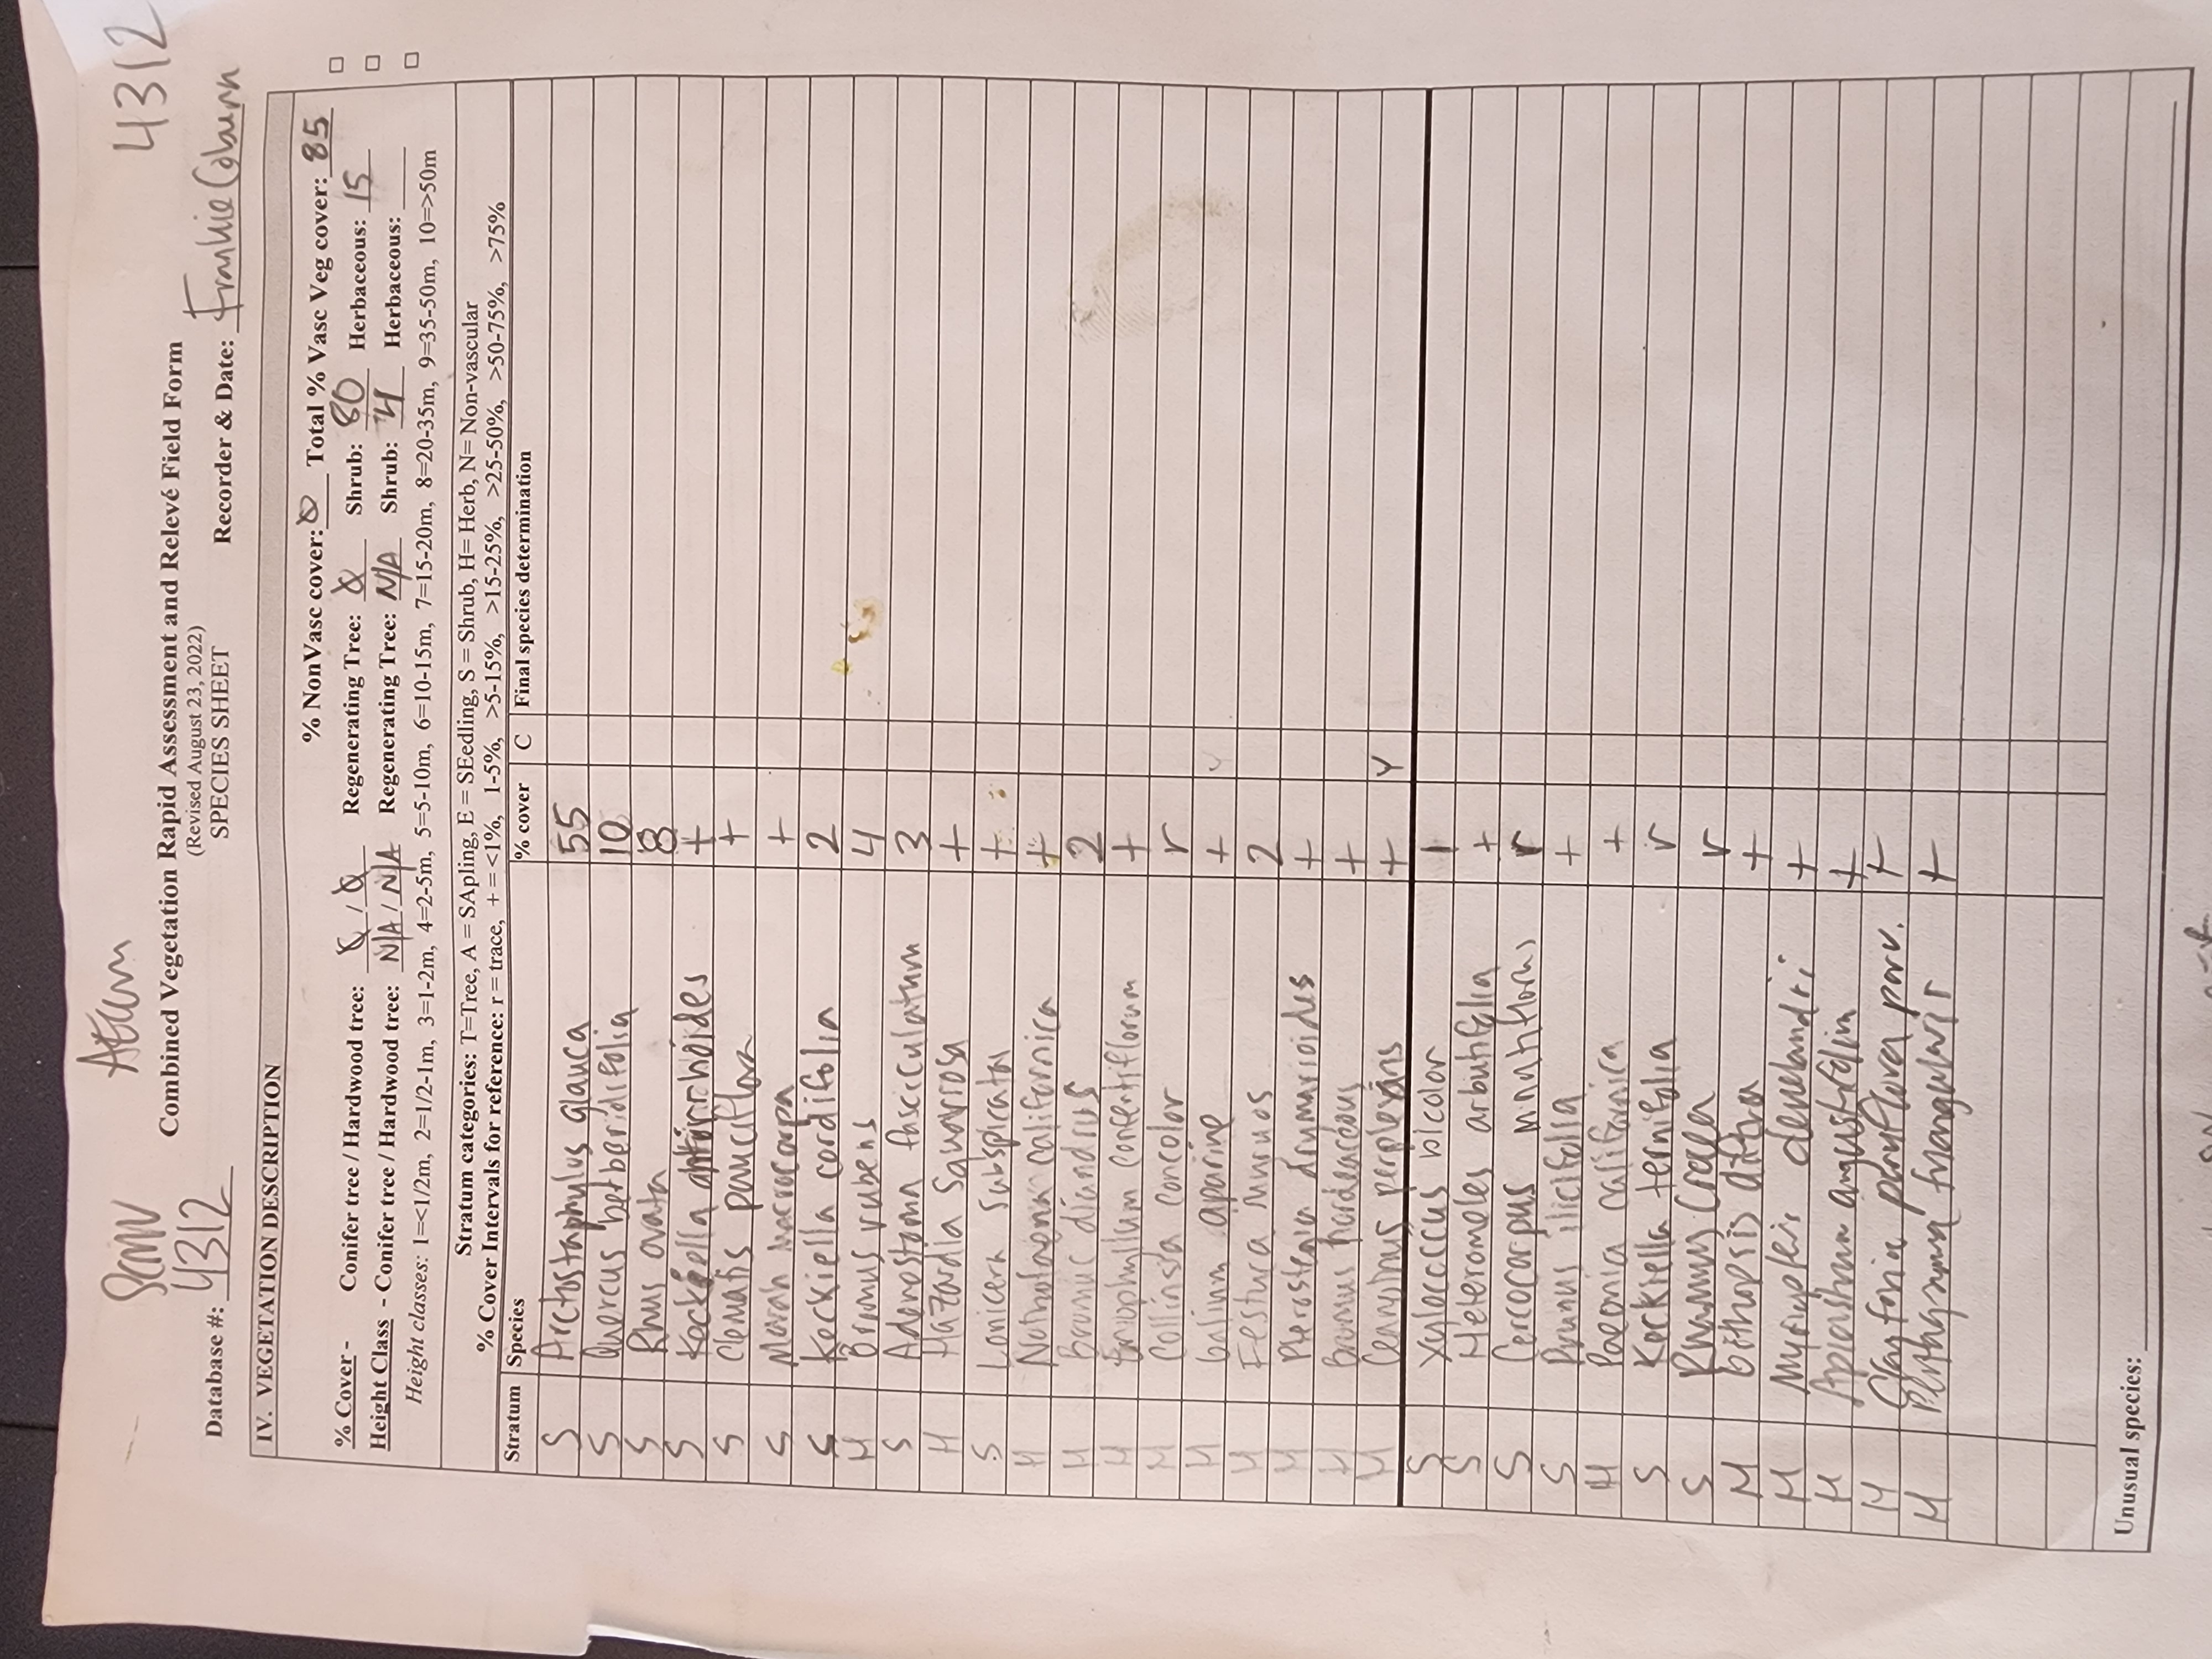 SMV Atam 4312
Combined Vegetation Rapid Assessment and Relevé Field Form
(Revised August 23, 2022)
Database #: 4312 SPECIES SHEET Recorder & Date: Frankie Coburn
IV. VEGETATION DESCRIPTION
% NonVasc cover: 0 Total % Vasc Veg cover: 85
% Cover - Conifer tree / Hardwood tree: 0 / 0 Regenerating Tree: 0 Shrub: 80 Herbaceous: 15
Height Class - Conifer tree / Hardwood tree: N/A / N/A Regenerating Tree: N/A Shrub: 4 Herbaceous:
Height classes: 1=<1/2m, 2=1/2-1m, 3=1-2m, 4=2-5m, 5=5-10m, 6=10-15m, 7=15-20m, 8=20-35m, 9=35-50m, 10=>50m
Stratum categories: T=Tree, A = SApling, E = SEedling, S = Shrub, H= Herb, N= Non-vascular
% Cover Intervals for reference: r = trace, + = <1%, 1-5%, >5-15%, >15-25%, >25-50%, >50-75%, >75%
Stratum Species % cover C Final species determination
S Arctostaphylus glauca 55
S Quercus berberidifolia 10
S Rhus ovata 8
S Keckiella antirrhoides +
S Clematis pauciflora +
S Marah macrocarpa +
S Keckiella cordifolia 2
H Bromus rubens 4
S Adenostoma fasciculatum 3
H Hazardia squarrosa +
S Lonicera subspicata +
H Notholaena californica +
H Bromus diandrus 2
H Eriophyllum confertiflorum +
H Collinsia concolor r
H Galium aparine + Y
H Festuca muruos 2
H Pterostegia drymarioides +
H Bromus hordeaceous +
H perplexans + Y
S Xylococcus bicolor 1
S Heteromeles arbutifolia +
S Cercocarpus minutiflorus r
S Prunus ilicifolia +
H Paeonia californica +
S Keckiella ternifolia r
S Rhamnus Crocea r
H +
H +
H Apiastrum angustifolium +
H Claytonia parviflora parv. +
H Pentagramma triangularis +
Unusual species: